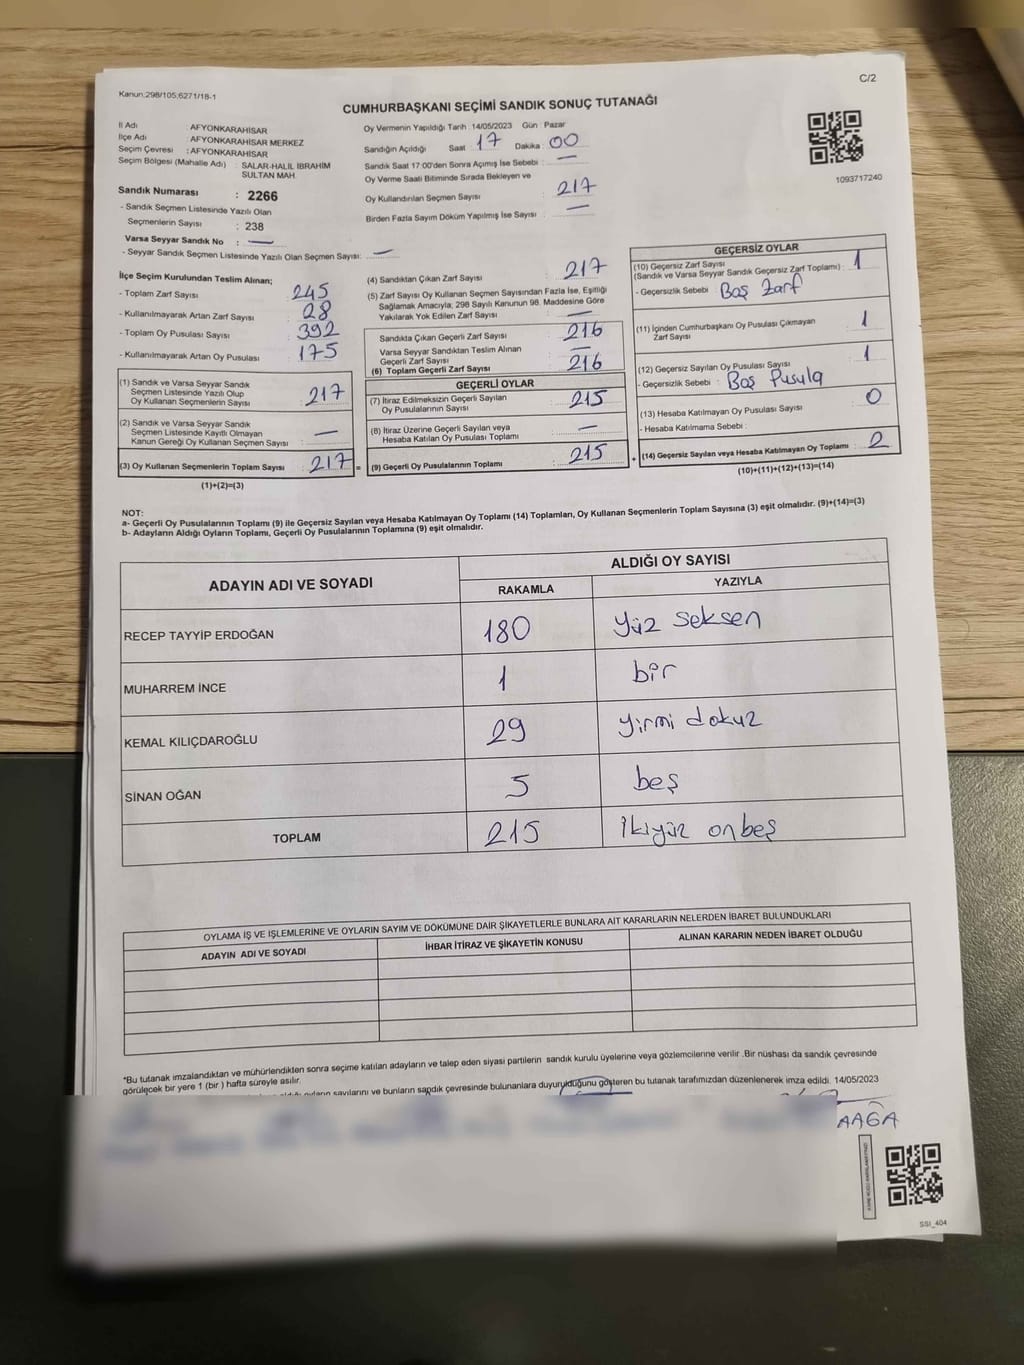 Kanun:298/105,6271/18-1
C/2
CUMHURBAŞKANI SEÇİMİ SANDIK SONUÇ TUTANAĞI
İl Adı : AFYONKARAHİSAR
İlçe Adı : AFYONKARAHİSAR MERKEZ
Seçim Çevresi : AFYONKARAHİSAR
Seçim Bölgesi (Mahalle Adı) : SALAR-HALİL İBRAHİM SULTAN MAH.
Sandık Numarası : 2266
- Sandık Seçmen Listesinde Yazılı Olan
Seçmenlerin Sayısı : 238
Varsa Seyyar Sandık No : —
- Seyyar Sandık Seçmen Listesinde Yazılı Olan Seçmen Sayısı: —
Oy Vermenin Yapıldığı Tarih :14/05/2023 Gün : Pazar
Sandığın Açıldığı Saat : 17 Dakika : 00
Sandık Saat 17:00'den Sonra Açımış İse Sebebi : —
Oy Verme Saati Bitiminde Sırada Bekleyen ve
Oy Kullandırılan Seçmen Sayısı : 217
Birden Fazla Sayım Döküm Yapılmış İse Sayısı : —
1093717240
İlçe Seçim Kurulundan Teslim Alınan;
- Toplam Zarf Sayısı : 245
- Kullanılmayarak Artan Zarf Sayısı : 28
- Toplam Oy Pusulası Sayısı : 392
- Kullanılmayarak Artan Oy Pusulası : 175
(1) Sandık ve Varsa Seyyar Sandık
Seçmen Listesinde Yazılı Olup
Oy Kullanan Seçmenlerin Sayısı : 217
(2) Sandık ve Varsa Seyyar Sandık
Seçmen Listesinde Kayıtlı Olmayan
Kanun Gereği Oy Kullanan Seçmen Sayısı : —
(3) Oy Kullanan Seçmenlerin Toplam Sayısı : 217 =
(1)+(2)=(3)
(4) Sandıktan Çıkan Zarf Sayısı : 217
(5) Zarf Sayısı Oy Kullanan Seçmen Sayısından Fazla İse, Eşitliği
Sağlamak Amacıyla, 298 Sayılı Kanunun 98. Maddesine Göre
Yakılarak Yok Edilen Zarf Sayısı : —
Sandıkta Çıkan Geçerli Zarf Sayısı : 216
Varsa Seyyar Sandıktan Teslim Alınan
Geçerli Zarf Sayısı : —
(6) Toplam Geçerli Zarf Sayısı : 216
GEÇERLİ OYLAR
(7) İtiraz Edilmeksizin Geçerli Sayılan
Oy Pusulalarının Sayısı : 215
(8) İtiraz Üzerine Geçerli Sayılan veya
Hesaba Katılan Oy Pusulası Toplamı : —
(9) Geçerli Oy Pusulalarının Toplamı : 215 +
GEÇERSİZ OYLAR
(10) Geçersiz Zarf Sayısı
(Sandık ve Varsa Seyyar Sandık Geçersiz Zarf Toplamı) : 1
- Geçersizlik Sebebi : Boş Zarf
(11) İçinden Cumhurbaşkanı Oy Pusulası Çıkmayan
Zarf Sayısı : 1
(12) Geçersiz Sayılan Oy Pusulası Sayısı : 1
- Geçersizlik Sebebi : Boş Pusula
(13) Hesaba Katılmayan Oy Pusulası Sayısı : 0
- Hesaba Katılmama Sebebi :
(14) Geçersiz Sayılan veya Hesaba Katılmayan Oy Toplamı : 2
(10)+(11)+(12)+(13)=(14)
NOT:
a- Geçerli Oy Pusulalarının Toplamı (9) ile Geçersiz Sayılan veya Hesaba Katılmayan Oy Toplamı (14) Toplamları, Oy Kullanan Seçmenlerin Toplam Sayısına (3) eşit olmalıdır. (9)+(14)=(3)
b- Adayların Aldığı Oyların Toplamı, Geçerli Oy Pusulalarının Toplamına (9) eşit olmalıdır.
ADAYIN ADI VE SOYADI
ALDIĞI OY SAYISI
RAKAMLA YAZIYLA
RECEP TAYYİP ERDOĞAN 180 yüz seksen
MUHARREM İNCE 1 bir
KEMAL KILIÇDAROĞLU 29 yirmi dokuz
SİNAN OĞAN 5 beş
TOPLAM 215 İkiyüz onbeş
OYLAMA İŞ VE İŞLEMLERİNE VE OYLARIN SAYIM VE DÖKÜMÜNE DAİR ŞİKAYETLERLE BUNLARA AİT KARARLARIN NELERDEN İBARET BULUNDUKLARI
ADAYIN ADI VE SOYADI İHBAR İTİRAZ VE ŞİKAYETİN KONUSU ALINAN KARARIN NEDEN İBARET OLDUĞU
*Bu tutanak imzalandıktan ve mühürlendikten sonra seçime katılan adayların ve talep eden siyasi partilerin sandık kurulu üyelerine veya gözlemcilerine verilir .Bir nüshası da sandık çevresinde
görülecek bir yere 1 (bir ) hafta süreyle asılır.
oyların sayılarını ve bunların sandık çevresinde bulunanlara duyurulduğunu gösteren bu tutanak tarafımızdan düzenlenerek imza edildi. 14/05/2023
AAĞA
SSI_404